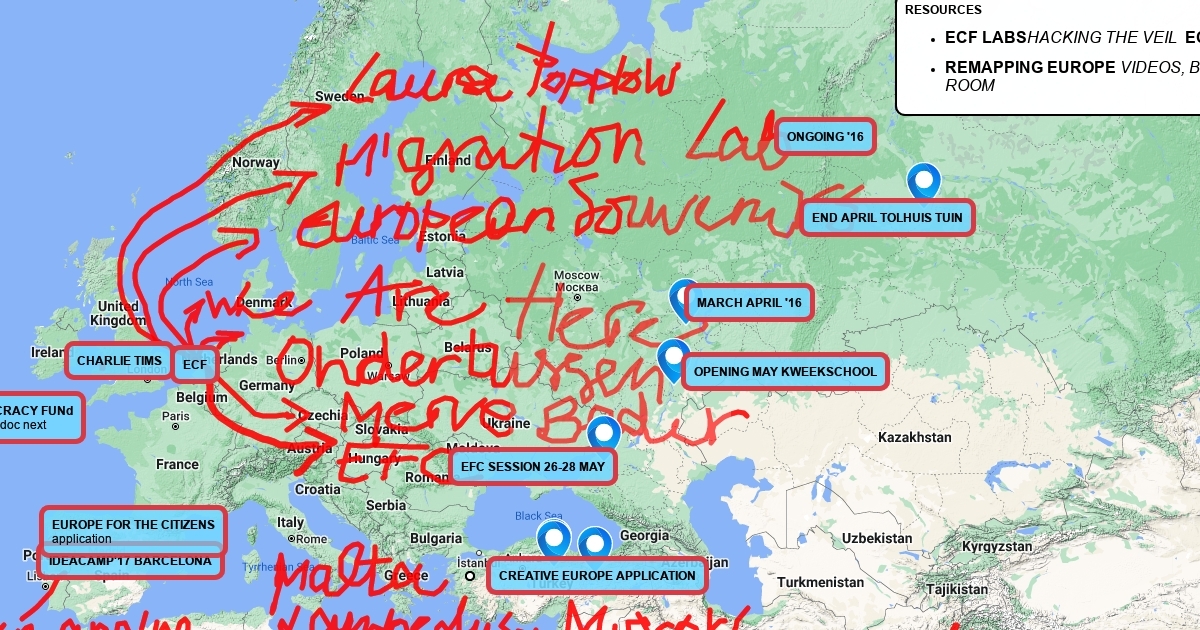 RESOURCES
ECF LABS HACKING THE VEIL
REMAPPING EUROPE VIDEOS, B
ROOM
Laura Popplow
Sweden
ONGOING '16
Migration Lab
Finland
Norway
END APRIL TOLHUIS TUIN
European Souvenirs
Baltic Sea
Estonia
Latvia
Moscow
Москва
North Sea
United Kingdom
Denmark
Lithuania
We Are Here
MARCH APRIL '16
Ireland
CHARLIE TIMS
London
ECF
Berlin
Poland
Belarus
Ondertussen
Warsaw
OPENING MAY KWEEKSCHOOL
Germany
Belgium
doc next
Paris
Czechia
Merve Bedir
Slovakia
Ukraine
Kazakhstan
France
Austria
Hungary
EFC
Moldova
EFC SESSION 26-28 MAY
Croatia
Serbia
EUROPE FOR THE CITIZENS
application
Italy
Rome
Bulgaria
Black Sea
Georgia
IDEACAMP'17 BARCELONA
Uzbekistan
Kyrgyzstan
Malta
Greece
CREATIVE EUROPE APPLICATION
Azerbaijan
Turkey
Turkmenistan
Tajikistan
Spain